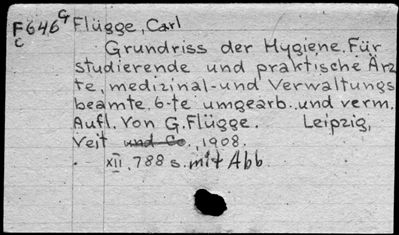 F646 G Flügge, Carl
C
Grundriss der Hygiene. Für
studierende und praktische Ärz
te, medizinal- und Verwaltungs
beamte. 6-te umgearb. und verm.
Aufl. Von G. Flügge. Leipzig,
Veit und Co., 1908.
XII, 788 s. mit Abb.